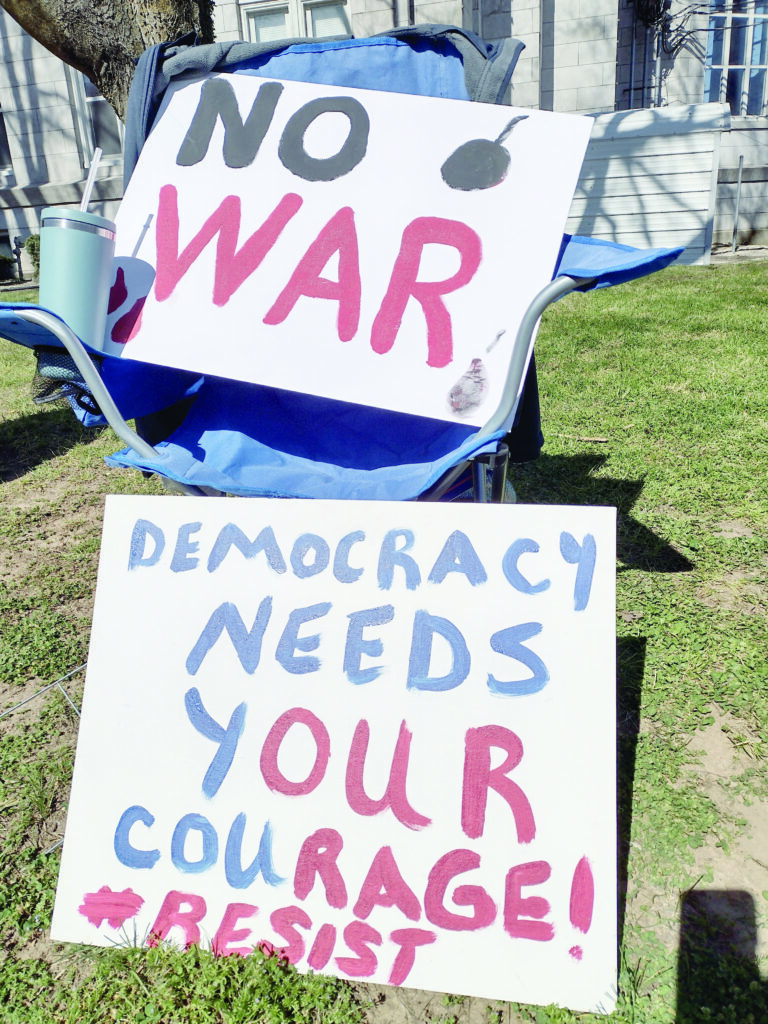 NO
WAR
DEMOCRACY
NEEDS
YOUR
COURAGE!
#RESIST